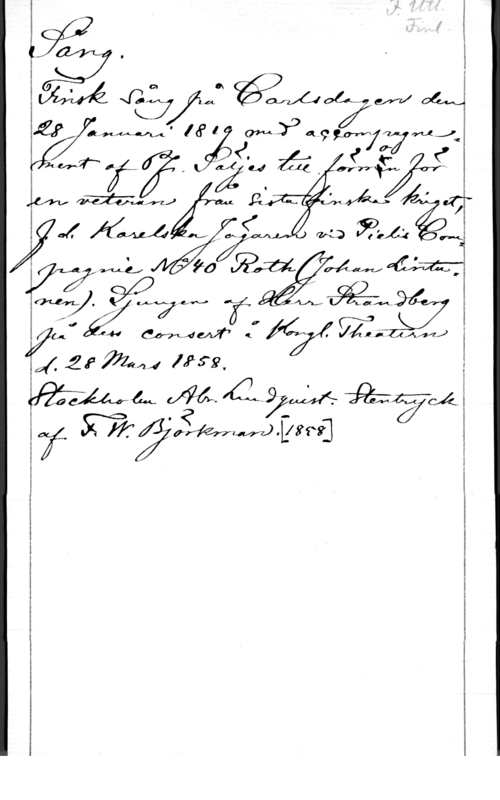 F. Utl.
Finl.
Sång.
Finsk Sång på Carlsdagen den
28 Januari 1819 med accompagne-
ment af Pf. Säljes till förmån för
en veteran från sista finska kriget,
f. d. Karelska Jägaren vid Pielis Com-
pagnie No 40 Roth (Johan Lintu-
nen). Sjungen af Herr Strandberg
på dess consert å Kongl. Theatern
d. 28 Mars 1858.
Stockholm Abr. Lundquist. Stentryck
af F. W. Björkman. [1858]